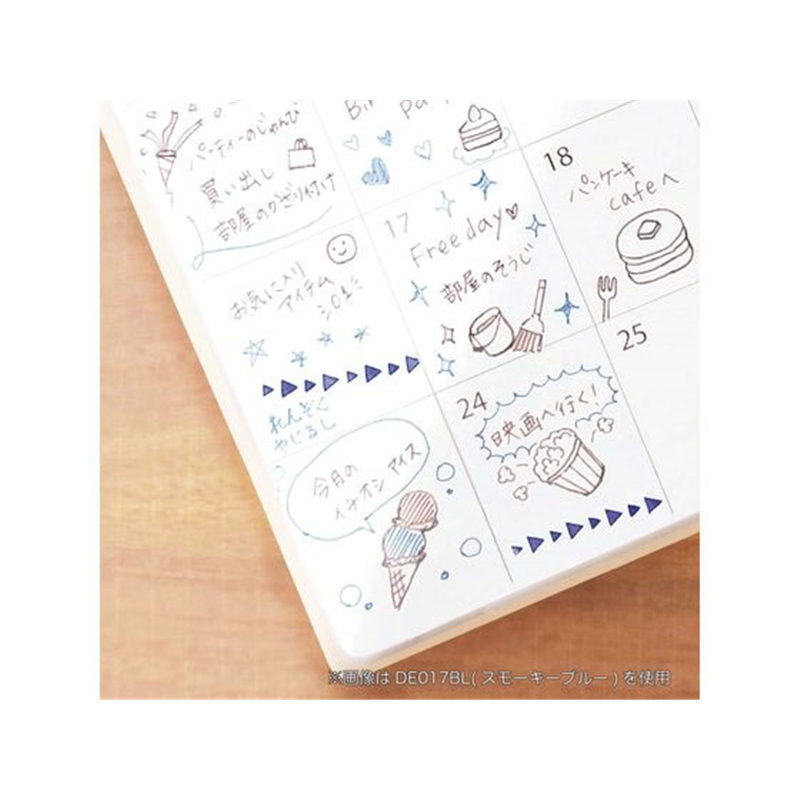 パーティーのじゅんび
買い出し
部屋のかざり付け
17
Free day♡
部屋のそうじ
18
パンケーキ
cafeへ
お気に入り
アイテム
れんぞく
やじるし
24
映画へ行く!
25
今月の
イチオシ アイス
※画像は DE017BL(スモーキーブルー)を使用